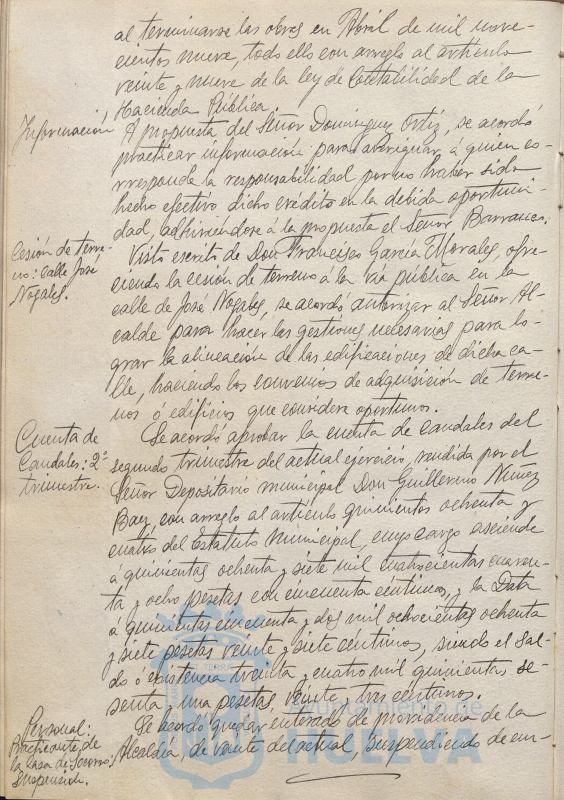 al terminarse las obras en Abril de mil nove-
cientos nueve, todo ello con arreglo al artículo
veinte y nueve de la ley de Contabilidad de la
Hacienda Pública.
Información
A propuesta del Señor Dominguez Ortiz, se acordó
practicar información para averiguar á quien co-
rresponde la responsabilidad por no haber sido
hecho efectivo dicho crédito en la debida oportuni-
dad, adhiriendose á la propuesta el Señor Barranco.
Cesión de terre-
no: calle José
Nogales.
Visto escrito de Don Francisco García Morales, ofre-
ciendo la cesión de terreno á la vía pública en la
calle de José Nogales, se acordó autorizar al Señor Al-
calde para hacer las gestiones necesarias para lo-
grar la alineación de las edificaciones de dicha ca-
lle, haciendo los convenios de adquisición de terre-
nos o edificios que considere oportunos.
Cuenta de
Caudales: 2º
trimestre.
Se acordó aprobar la cuenta de caudales del
segundo trimestre del actual ejercicio, rendida por el
Señor Depositario municipal Don Guillermo Núñez
Baez, con arreglo al artículo quinientos ochenta y
cuatro del Estatuto Municipal, cuyo cargo asciende
á quinientas ochenta y siete mil cuatrocientas cuaren-
ta y ocho pesetas con cincuenta céntimos, y la Data
á quinientas cincuenta y dos mil ochocientas ochenta
y siete pesetas veinte y siete céntimos, siendo el Sal-
do ó existencia treinta y cuatro mil quinientas se-
senta y una pesetas, veinte y tres céntimos.
Personal.
Practicante de
la Casa de Socorro:
Suspensión.
Se acordó quedar enterado de providencia de la
Alcaldía, de veinte del actual, suspendiendo de em-
Ayuntamiento de
HUELVA